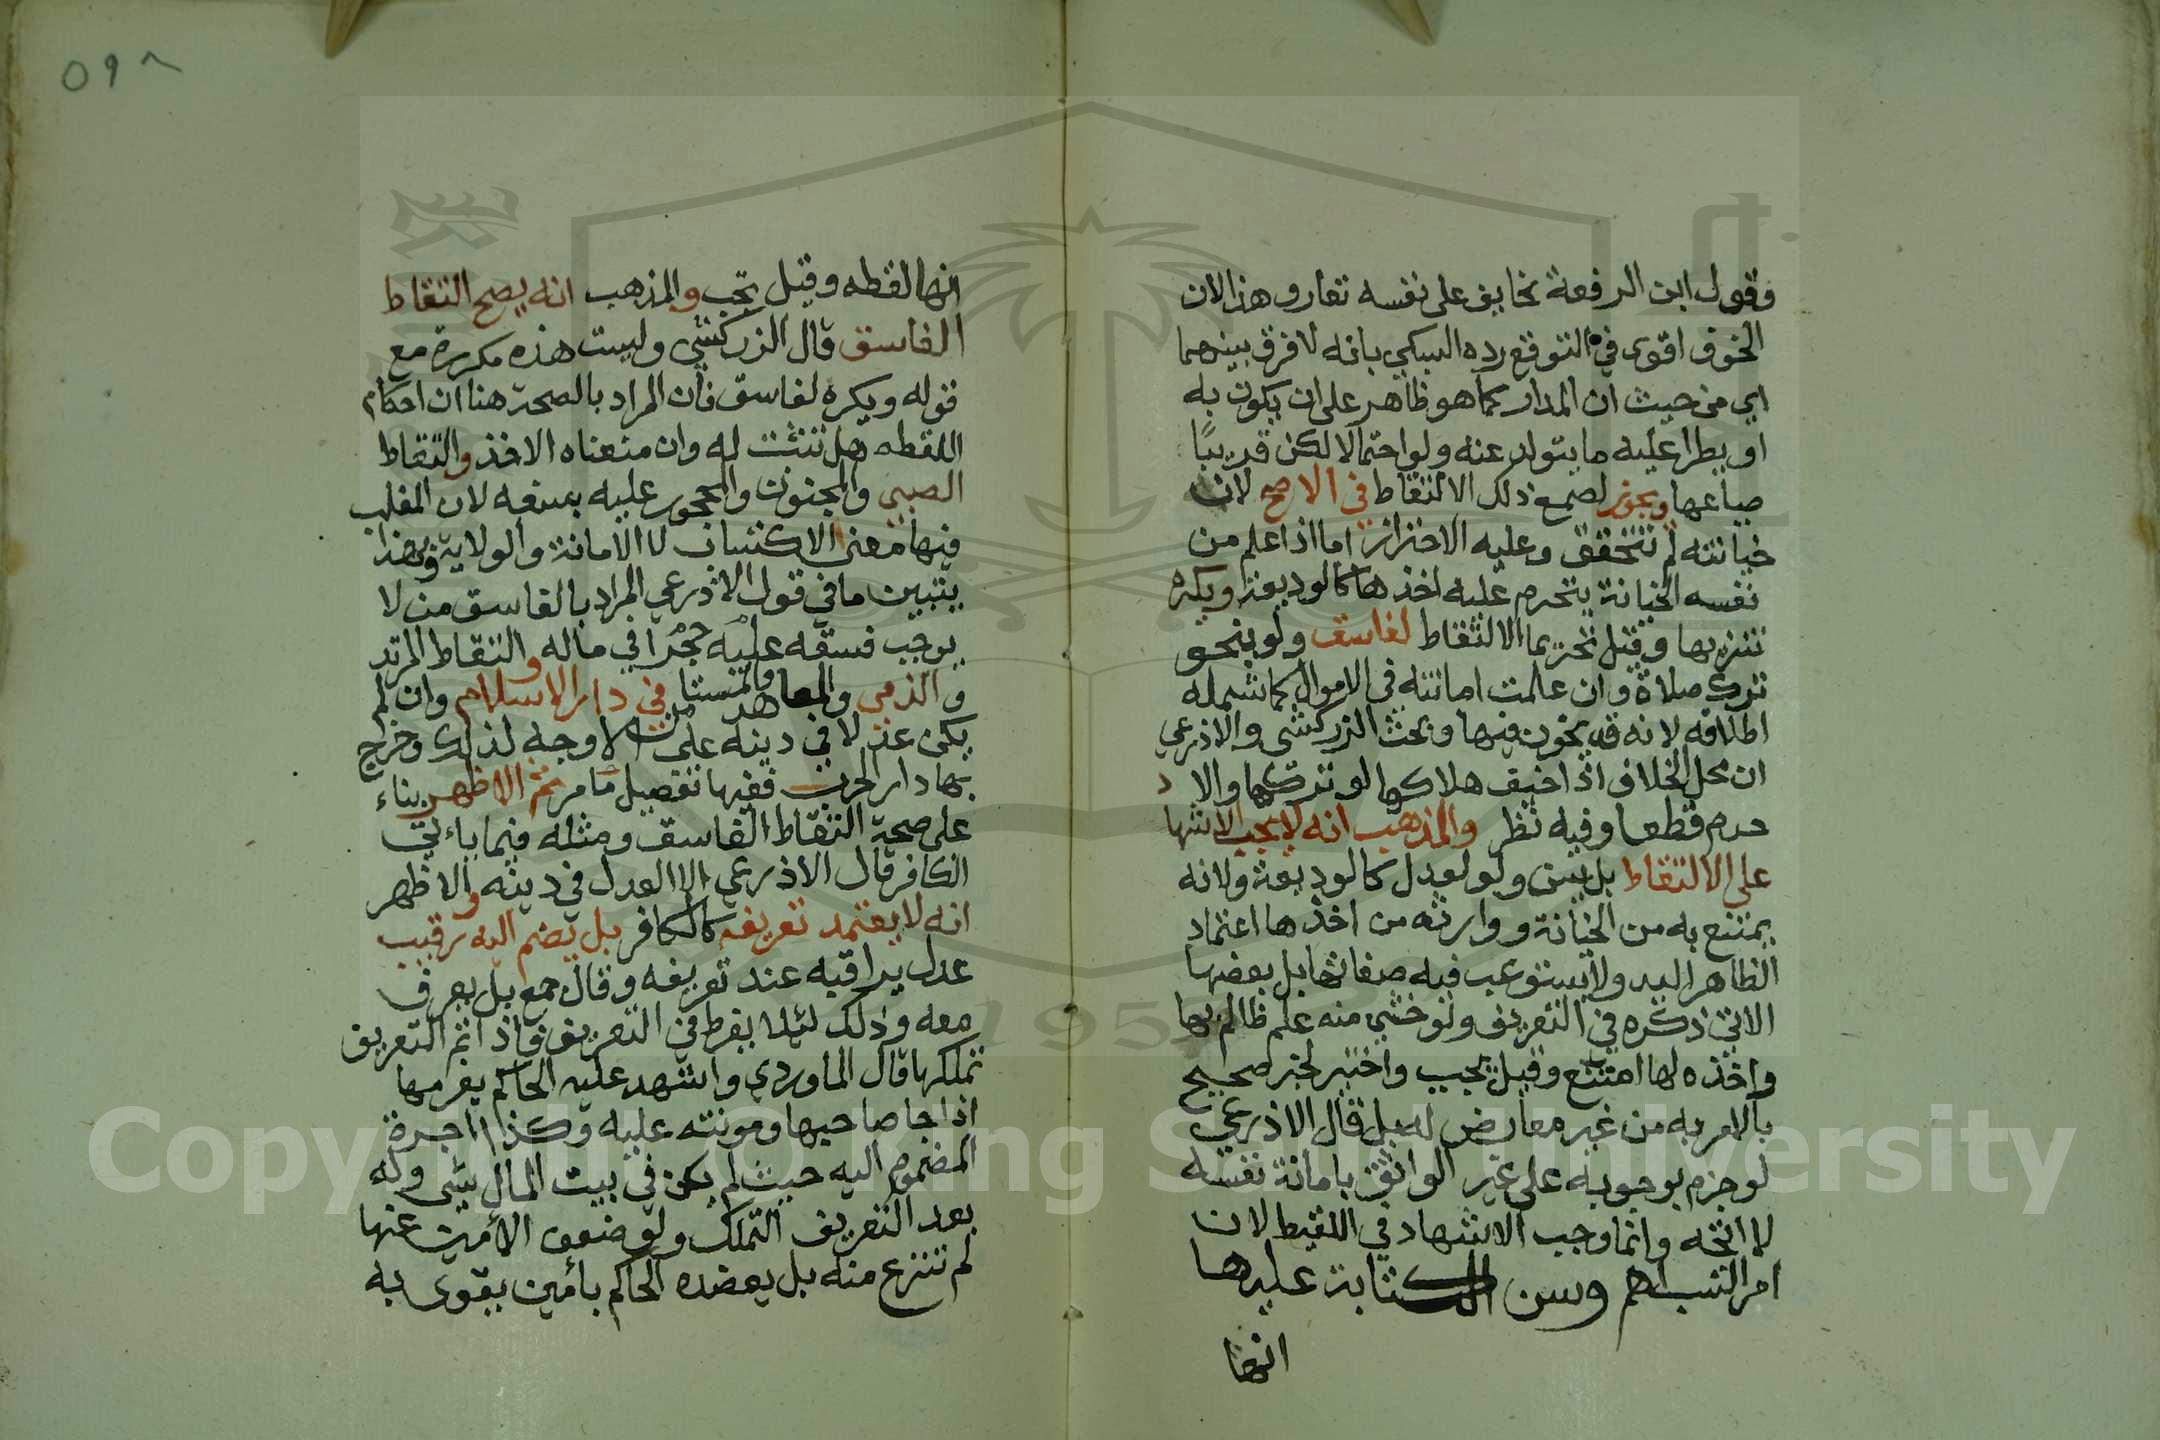 وقول ابن الرفعة بخايف على نفسه تعارو هذالان
الخوف اقوى في التوقع رده السبكي بانه لا فرق بينهما
اي من حيث ان المدار كما هو ظاهر على ان يكون به
او يطرا عليه ما يتولد عنه ولو احتمالا لكن قريبًا
ضياعها ويجوز لصمع ذلك الالتقاط في الاصح لان
خيانته لم تتحقق وعليه الاحتراز اما اذا علم من
نفسه الخيانة يتحرم عليه اخذها كالوديعة ويكره
تنزيها وقيل تحريما الالتقاط لفاسق ولو بنحو
ترك صلاة وان علمت امانته في الاموال كما شمله
اطلاقه لانه قد يخون فيها وبحث الزركشي والاذرعي
ان محل الخلاف اذا خيف هلاكها لو تركها والا
حرم قطعا وفيه نظر والمذهب انه لا يجب الاشهاد
على الالتقاط بل يسن ولو لعدل كالوديعة ولانه
يمتنع به من الخيانة ووارثه من اخذها اعتماد
الظاهر اليد ولا يستوعب فيه صفاتها بل بعضها
الاتي ذكره في التعريف ولو خشي منه علم ظالم بها
واخذه لها امتنع وقيل يجب واختير لخبر صحيح
بالامر به من غير معارض له بل قال الاذرعي
لو جزم بوجوبه على غير الواثق بامانة نفسه
لاتجه وانما وجب الاشهاد في اللقيط لان
امر النسب اهم وسن الكتابة عليها
انها
٥٩٨
انها لقطه وقيل تجب والمذهب انه يصح التقاط
الفاسق قال الزركشي وليست هذه مكررة مع
قوله ويكره لفاسق فان المراد بالصحة هنا ان احكام
اللقطه هل تثبت له وان منعناه الاخذ والتقاط
الصبي والمجنون والمحجور عليه بسفه لان المغلب
فيها معنى الاكتساب لا الامانة والولاية وبهذا
يتبين ما في قول الاذرعي المراد بالفاسق من لا
يوجب فسقه عليه حجرا في ماله والتقاط المرتد
والذمي والمعاهد والمستامن في دار الاسلام وان لم
يكن عدلا في دينه على الاوجه لذلك وخرج
بها دار الحرب ففيها تفصيل مامر ثم الاظهر بناء
على صحة التقاط الفاسق ومثله فيما ياءتي
الكافر قال الاذرعي الا العدل في دينه والاظهر
انه لا يعتمد تعريفه كالكافر بل يضم اليه رقيب
عدل يراقبه عند تعريفه وقال جمع بل يعرف
معه وذلك لئلا يفرط في التعريف فاذا تم التعريف
تملكها قال الماوردي واشهد عليه الحاكم بغرمها
اذا جا صاحبها ومونته عليه وكذا اجرة
المضموم اليه حيث لم يكن في بيت المال شي وله
بعد التعريف التملك ولو ضعف الأمين عنها
لم تنتزع منه بل يعضده الحاكم بأمين يقوى به
Copyright © King Saud University
1957